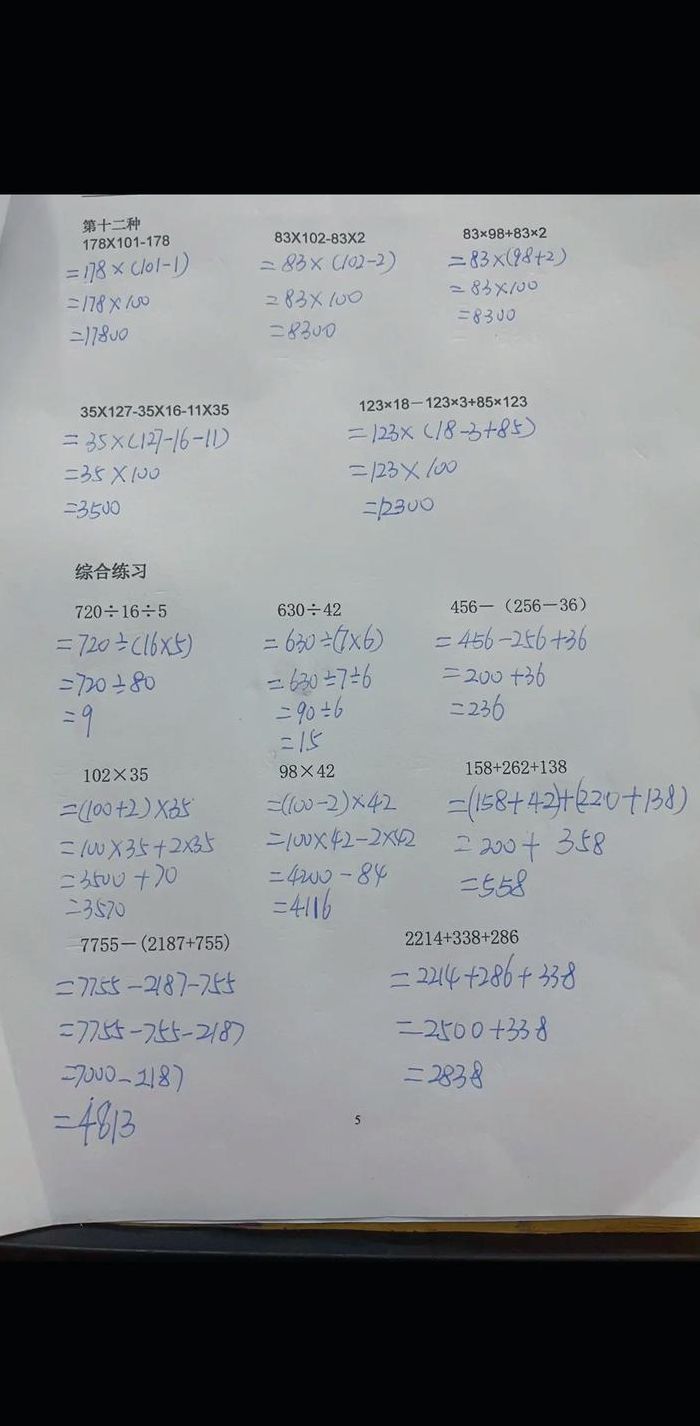 第十二种
178X101-178
=178×(101-1)
=178×100
=17800
83X102-83X2
=83×(102-2)
=83×100
=8300
83×98+83×2
=83×(98+2)
=83×100
=8300
35X127-35X16-11X35
=35×(127-16-11)
=35×100
=3500
123×18－123×3+85×123
=123×(18-3+85)
=123×100
=12300
综合练习
720÷16÷5
=720÷(16×5)
=720÷80
=9
630÷42
=630÷(7×6)
=630÷7÷6
=90÷6
=15
456－（256－36）
=456-256+36
=200+36
=236
102×35
=(100+2)×35
=100×35+2×35
=3500+70
=3570
98×42
=(100-2)×42
=100×42-2×42
=4200-84
=4116
158+262+138
=(158+42)+(220+138)
=200+358
=558
7755－(2187+755)
=7755-2187-755
=7755-755-2187
=7000-2187
=4813
2214+338+286
=2214+286+338
=2500+338
=2838
5